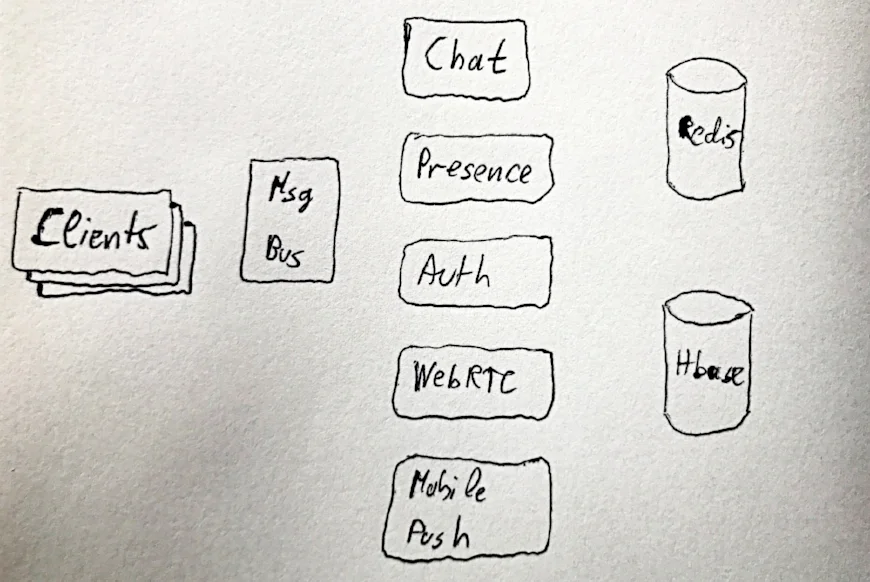 Clients
Msg
Bus
Chat
Presence
Auth
WebRTC
Mobile
Push
Redis
Hbase